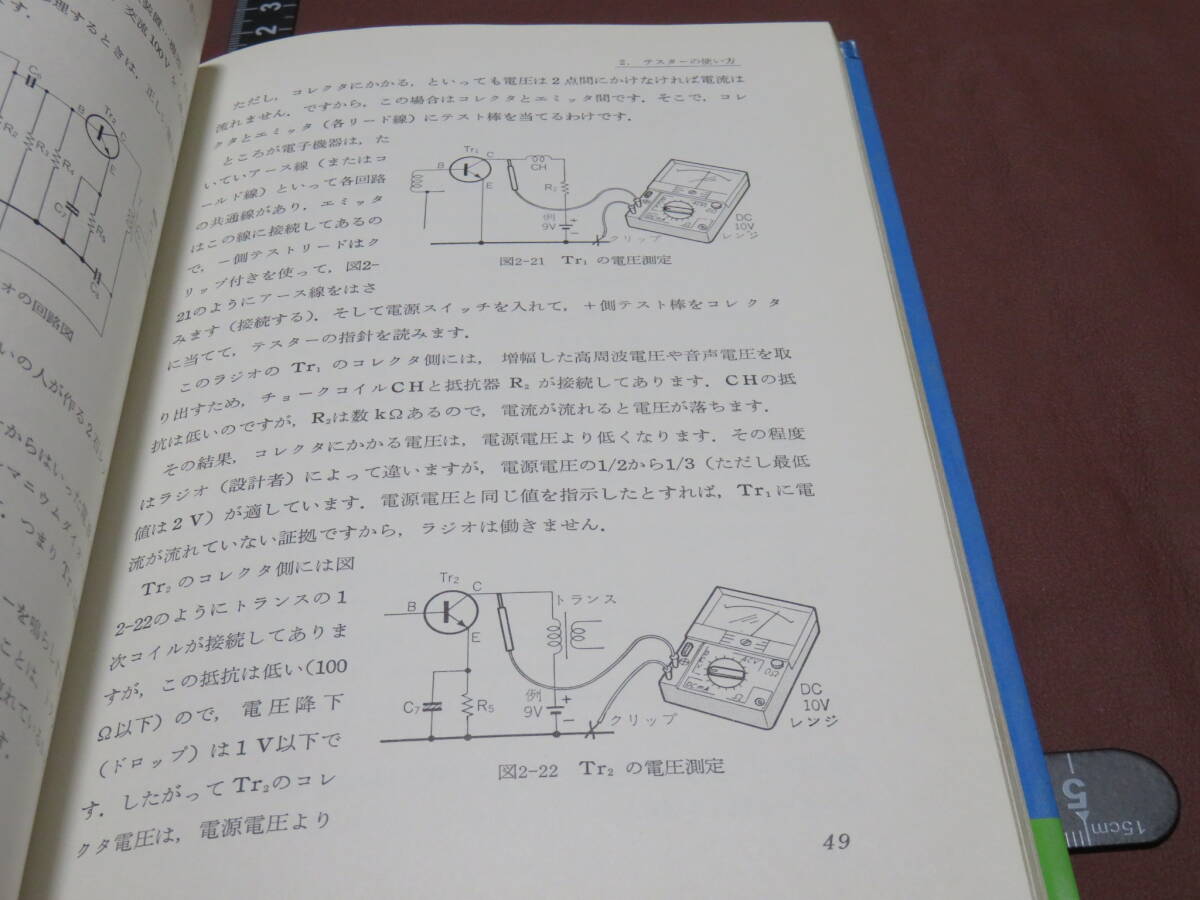 2．テスターの使い方
ただし，コレクタにかかる，といっても電圧は2点間にかけなければ電流は
流れません．ですから，この場合はコレクタとエミッタ間です．そこで，コレ
クタとエミッタ（各リード線）にテスト棒を当てるわけです．
ところが電子機器は，た
いていアース線（またはコ
ールド線）といって各回路
の共通線があり，エミッタ
はこの線に接続してあるの
で，－側テストリードはク
リップ付きを使って，図2-
21のようにアース線をはさ
みます（接続する）．そして電源スイッチを入れて，＋側テスト棒をコレクタ
に当てて，テスターの指針を読みます．
Tr₁
B
C
E
CH
R₂
例
9V
＋
－
クリップ
DC
10V
レンジ
図2-21 Tr₁ の電圧測定
このラジオの Tr₁ のコレクタ側には，増幅した高周波電圧や音声電圧を取
り出すため，チョークコイルCHと抵抗器 R₂ が接続してあります．CHの抵
抗は低いのですが，R₂は数kΩあるので，電流が流れると電圧が落ちます．
その結果，コレクタにかかる電圧は，電源電圧より低くなります．その程度
はラジオ（設計者）によって違いますが，電源電圧の1/2から1/3（ただし最低
値は2V）が適しています．電源電圧と同じ値を指示したとすれば，Tr₁に電
流が流れていない証拠ですから，ラジオは働きません．
Tr₂のコレクタ側には図
2-22のようにトランスの1
次コイルが接続してありま
すが，この抵抗は低い(100
Ω以下)ので，電圧降下
（ドロップ）は1V以下で
す．したがってTr₂のコレ
クタ電圧は，電源電圧より
Tr₂
B
C
E
トランス
C₇
R₅
例
9V
＋
－
クリップ
DC
10V
レンジ
図2-22 Tr₂ の電圧測定
49
交流100V
Tr₂
C
E
C₇
オの回路図
いの人が作る2石
5
15cm
2
3